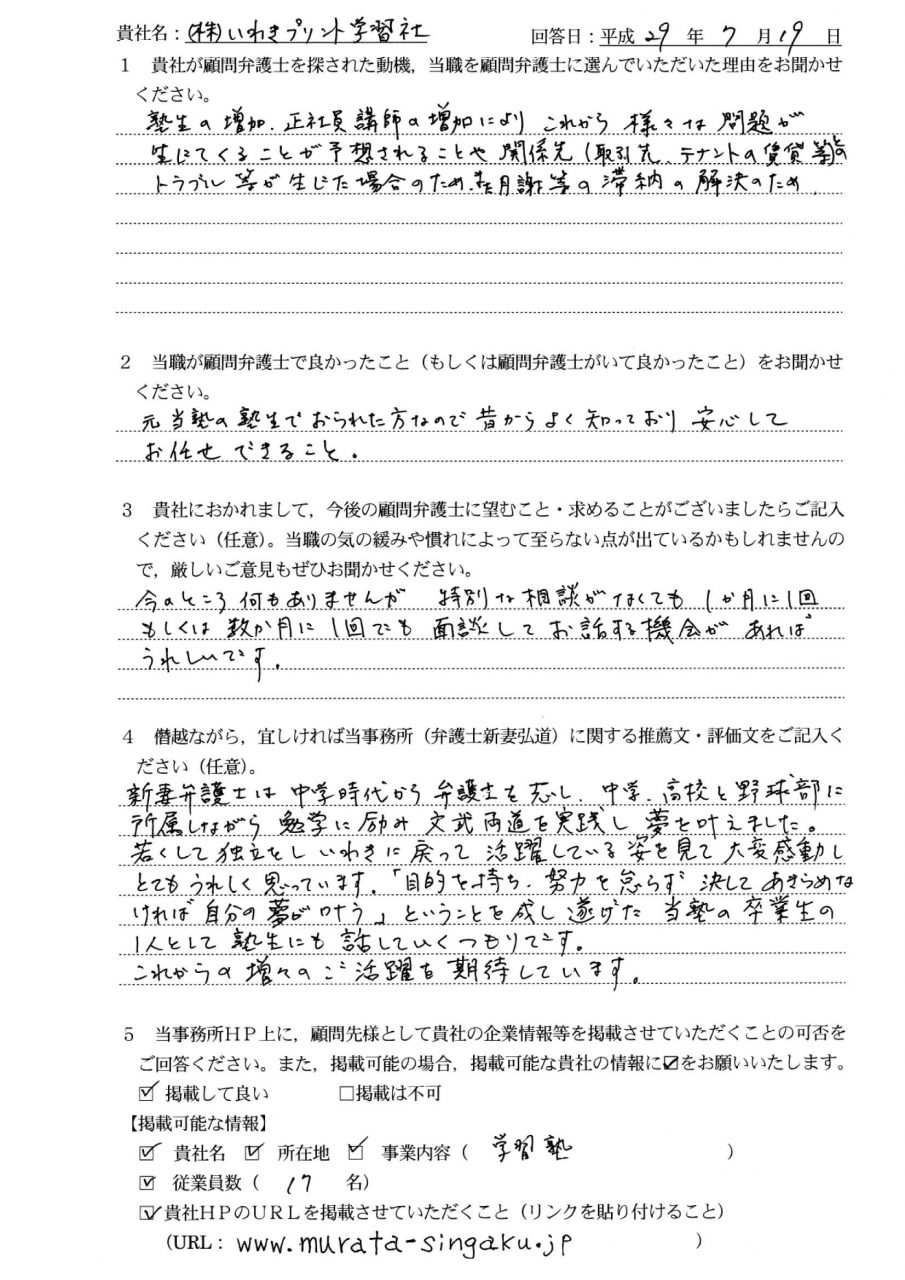 貴社名：(株)いわきプリント学習社　回答日：平成 29 年 7 月 19 日
１　貴社が顧問弁護士を探された動機，当職を顧問弁護士に選んでいただいた理由をお聞かせ
ください。
塾生の増加、正社員講師の増加により これから 様々な 問題が
生じてくることが予想されることや 関係先（取引先、テナントの賃貸等）との
トラブル等が生じた場合のため、月謝等の滞納の解決のため、
２　当職が顧問弁護士で良かったこと（もしくは顧問弁護士がいて良かったこと）をお聞かせ
ください。
元当塾の塾生でおられた方なので昔からよく知っており 安心して
お任せできること。
３　貴社におかれまして，今後の顧問弁護士に望むこと・求めることがございましたらご記入
ください（任意）。当職の気の緩みや慣れによって至らない点が出ているかもしれませんの
で，厳しいご意見もぜひお聞かせください。
今のところ何もありませんが 特別な相談がなくても 1か月に1回
もしくは 数か月に1回でも 面談してお話する機会が あれば
うれしいです。
４　僭越ながら，宜しければ当事務所（弁護士新妻弘道）に関する推薦文・評価文をご記入く
ださい（任意）。
新妻弁護士は 中学時代から 弁護士を志し、中学、高校と野球部に
所属しながら 勉学に励み 文武両道を実践し 夢を叶えました。
若くして独立をし いわきに戻って 活躍している姿を見て 大変感動し
とてもうれしく思っています。「目的を持ち、努力を怠らず 決して あきらめな
ければ 自分の夢が叶う」ということを成し遂げた 当塾の卒業生の
1人として 塾生にも 話していくつもりです。
これからの増々のご活躍を期待しています。
５　当事務所ＨＰ上に，顧問先様として貴社の企業情報等を掲載させていただくことの可否を
ご回答ください。また，掲載可能の場合，掲載可能な貴社の情報に☑をお願いいたします。
☑ 掲載して良い　□掲載は不可
【掲載可能な情報】
☑ 貴社名 ☑ 所在地 ☑ 事業内容（ 学習塾 ）
☑ 従業員数（ 17 名）
☑貴社ＨＰのＵＲＬを掲載させていただくこと（リンクを貼り付けること）
（URL：www.murata-singaku.jp ）